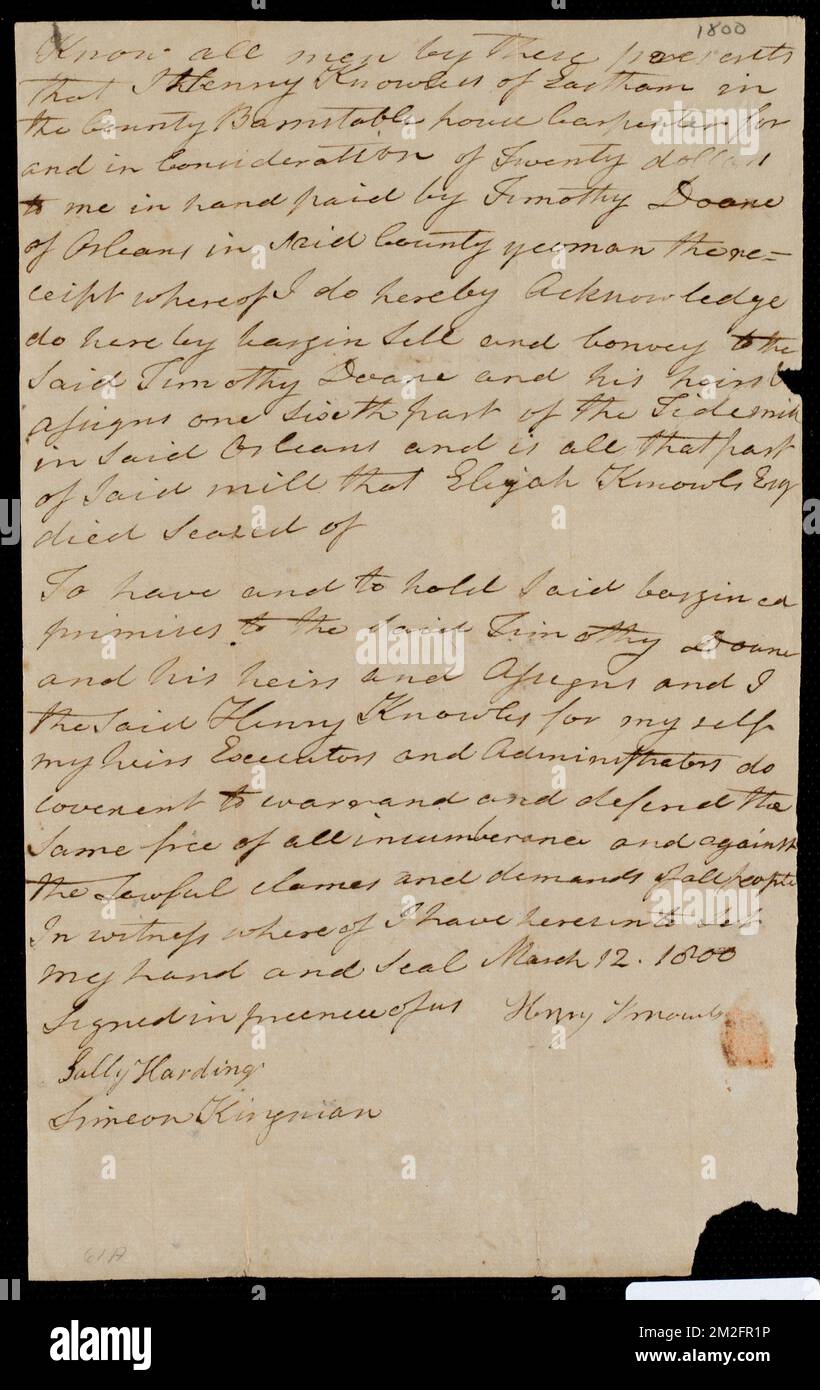 1800
Know all men by these presents
that I Henry Knowles of Eastham in
the County Barnstable house Carpenter for
and in Consideration of Twenty dollars
to me in hand paid by Timothy Doane
of Orleans in said County yeoman the re=
ceipt whereof I do hereby Acknowledge
do here by bargin Sell and Convey to the
Said Timothy Doane and his heirs &
assigns one Sixth part of the Tidemill
in Said Orleans and is all that part
of Said mill that Elijah Knowls Esqr
died Seazed of
To have and to hold Said bargined
primises to the said Timothy Doane
and his heirs and Assigns and I
the Said Henry Knowles for my self
my heirs Executors and Administrators do
covenent to warrand and defend the
Same free of all incumberance and against
the Lawful clames and demands of all people
In witness where of I have hereunto Set
my hand and Seal March 12. 1800
Signed in preence of us Henry Knowls
Sally Harding
Simeon Kingman
61A
alamy
Image ID: 2M2FR1P
www.alamy.com